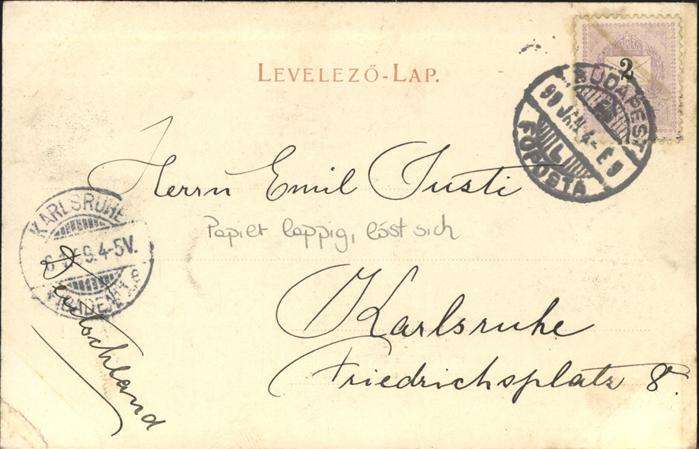 LEVELEZŐ-LAP.
2
BUDAPEST
99 JAN. 4-
FŐPOSTA
Herrn Emil Justi
Papier lappig, löst sich
KARLSRUHE
4-5V.
(BADEN)
Karlsruhe
Friedrichsplatz 8.
Deutschland